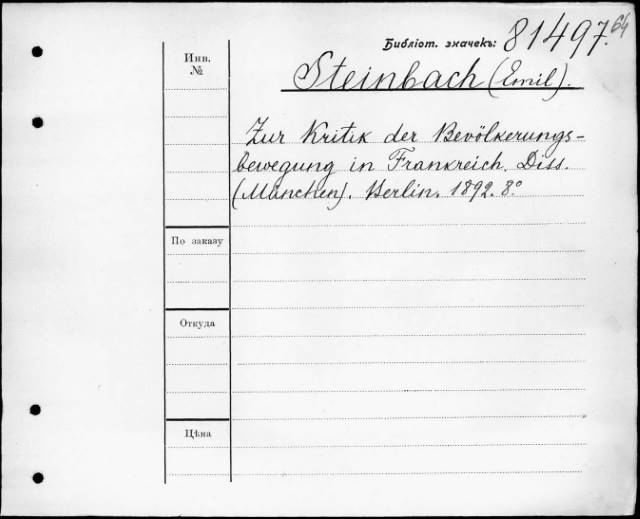 Библіот. значекъ: 81497. 64
Инв.
№
Steinbach (Emil).
Zur Kritik der Bevölkerungs-
bewegung in Frankreich. Diss.
(München). Berlin. 1892. 8°
По заказу
Откуда
Цѣна